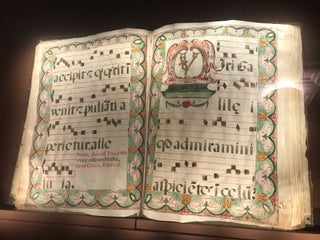 accipit ꝛ q̃ q̃rit i
venit ꝛ pulsãti a
perietur. alle
lu ia.
Viri Ga
lilęi
qd admiramini
aspiciẽtes i celũ?